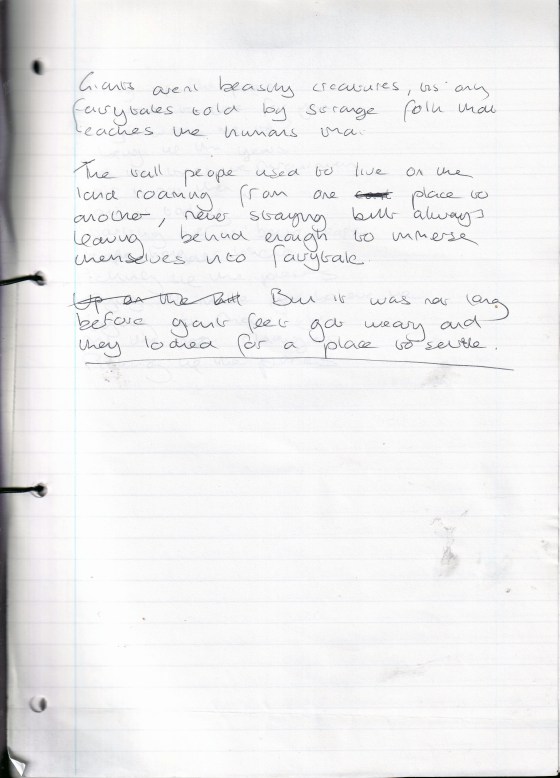 Giants arent beastly creatures, its only
fairytales told by strange folk that
teaches the humans that.
The tall people used to live on the
land roaming from one place to
another, never staying but always
leaving behind enough to immerse
themselves into fairytale.
Up on the hill But it was not long
before giants feet got weary and
they looked for a place to settle.